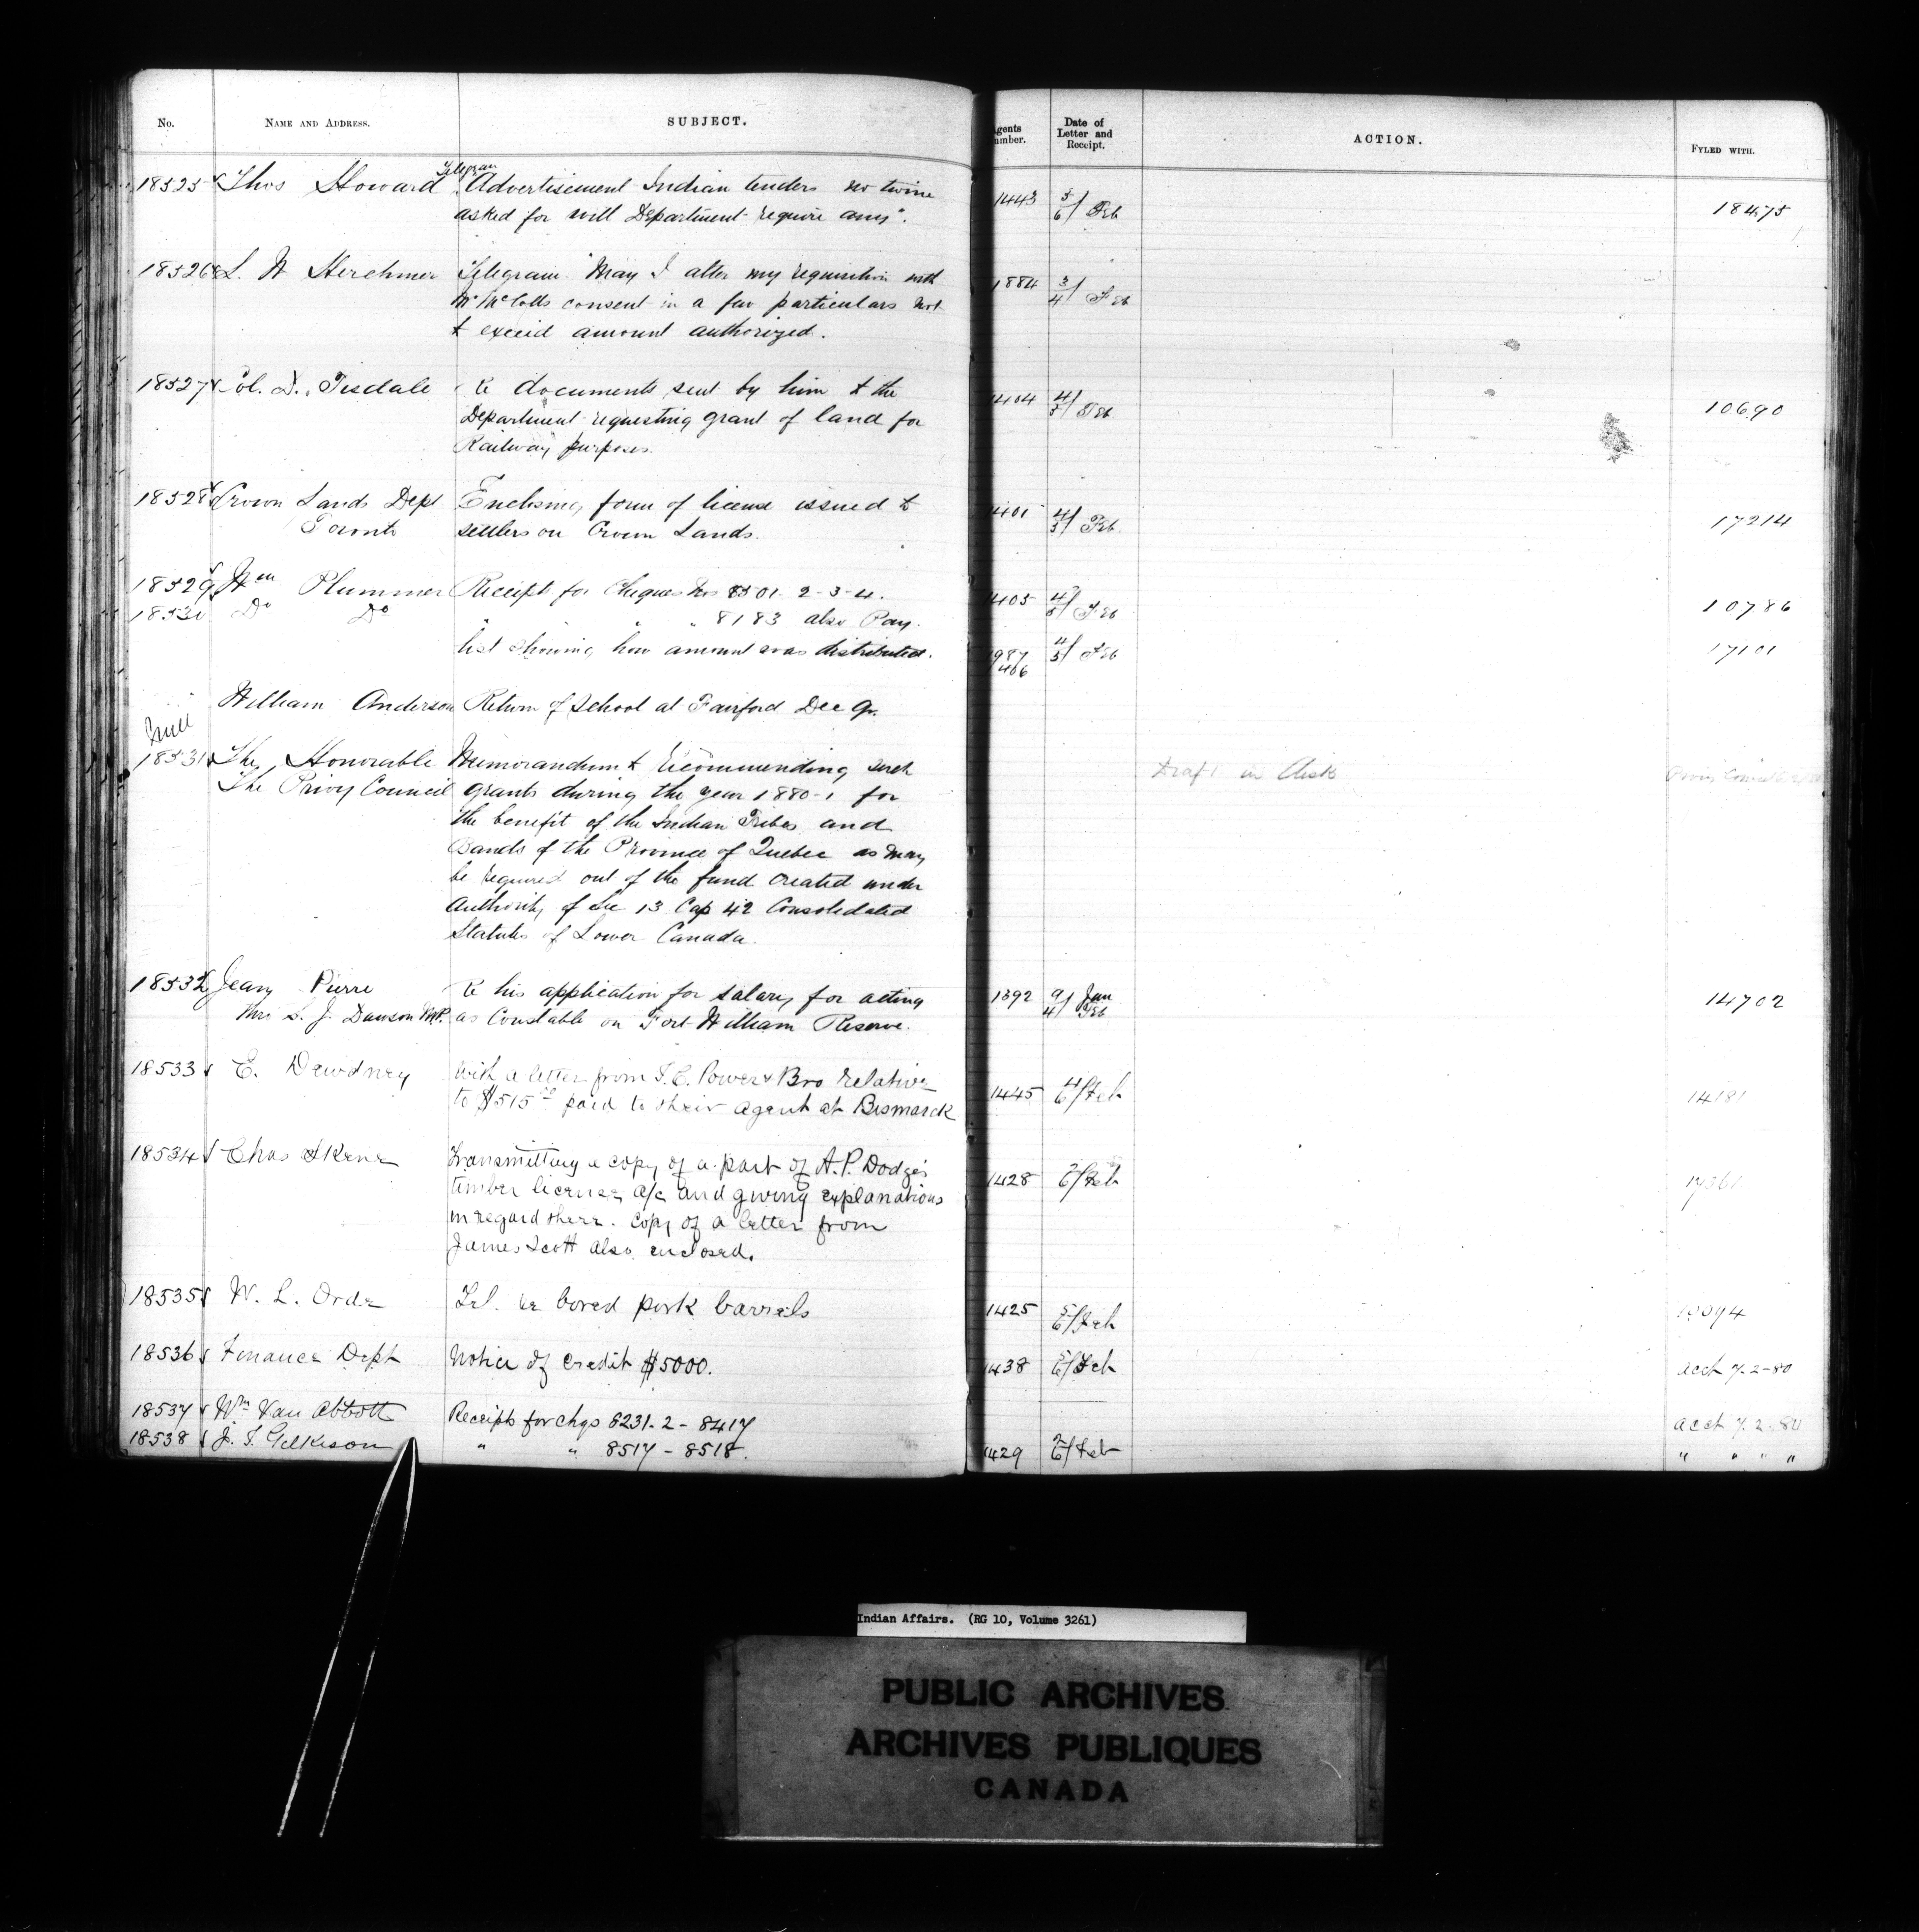 No. NAME AND ADDRESS. SUBJECT. Agents Number. Date of Letter and Receipt. ACTION. FYLED WITH.
18525 Thos Howard Telegram "Advertisement Indian tenders no twine 1443 5/6 Feb 18475
asked for will Department require any".
18526 L. W Herchmer Telegram "May I alter my requisition with 1884 3/4 Feb
Mr McColls consent in a few particulars not
to exceed amount authorized.
18527 Col. D. Tisdale Re documents sent by him to the 1404 4/5 Feb 10690
Department requesting grant of land for
Railway purposes.
18528 Crown Lands Dept Enclosing form of license issued to 1401 4/5 Feb 17214
Toronto settlers on Crown Lands.
18529 Wm Plummer Receipt for Cheques Nos 8501. 2-3-4. 1405 4/5 Feb 10786
18530 Do Do " " " 8183 also Pay
list showing how amount was distributed. 987 406 4/5 Feb 17101
William Anderson Return of School at Fairford Dec Qr.
18531 The Honourable Memorandum to Recommending such Draft in Desk
The Privy Council grants during the year 1880-1 for
the benefit of the Indian Tribes and
Bands of the Province of Quebec as may
be required out of the fund created under
Authority of Sec 13 Cap 42 Consolidated
Statutes of Lower Canada.
18532 Jean Pierre Re his application for salary for acting 1392 9/4 Jan Feb 14702
thro S. J. Dawson M.P. as Constable on Fort William Reserve.
18533 E. Dewdney With a letter from T.C. Power & Bro relative 1445 4/6 Feb 14181
to $515 paid to their agent at Bismarck
18534 Chas Skene Transmitting a copy of a part of A.P. Dodge's 1428 2/6 Feb
timber license a/c and giving explanations
in regard there. Copy of a letter from
James Scott also enclosed.
18535 W. L. Orde Tel. re bored pork barrels 1425 5/6 Feb
18536 Finance Dept Notice of credit $5000. 1438 5/6 Feb acct 7-2-80
18537 Wm Van Abbott Receipts for chqs 8231.2 - 8417 acct 7.2.80
18538 J. T. Gilkison " " 8517 - 8518. 1429 2/6 Feb " " " "
Indian Affairs. (RG 10, Volume 3261)
PUBLIC ARCHIVES
ARCHIVES PUBLIQUES
CANADA